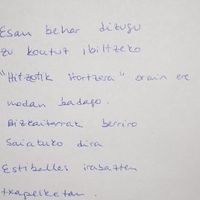 Esan behar dizugu
zu kontuz ibiltzeko
"Hitzetik Hortzera" orain ere
modan badago.
Bizkaitarrak berriro
Saiatuko dira
Estiballes irabazten
txapelketan.